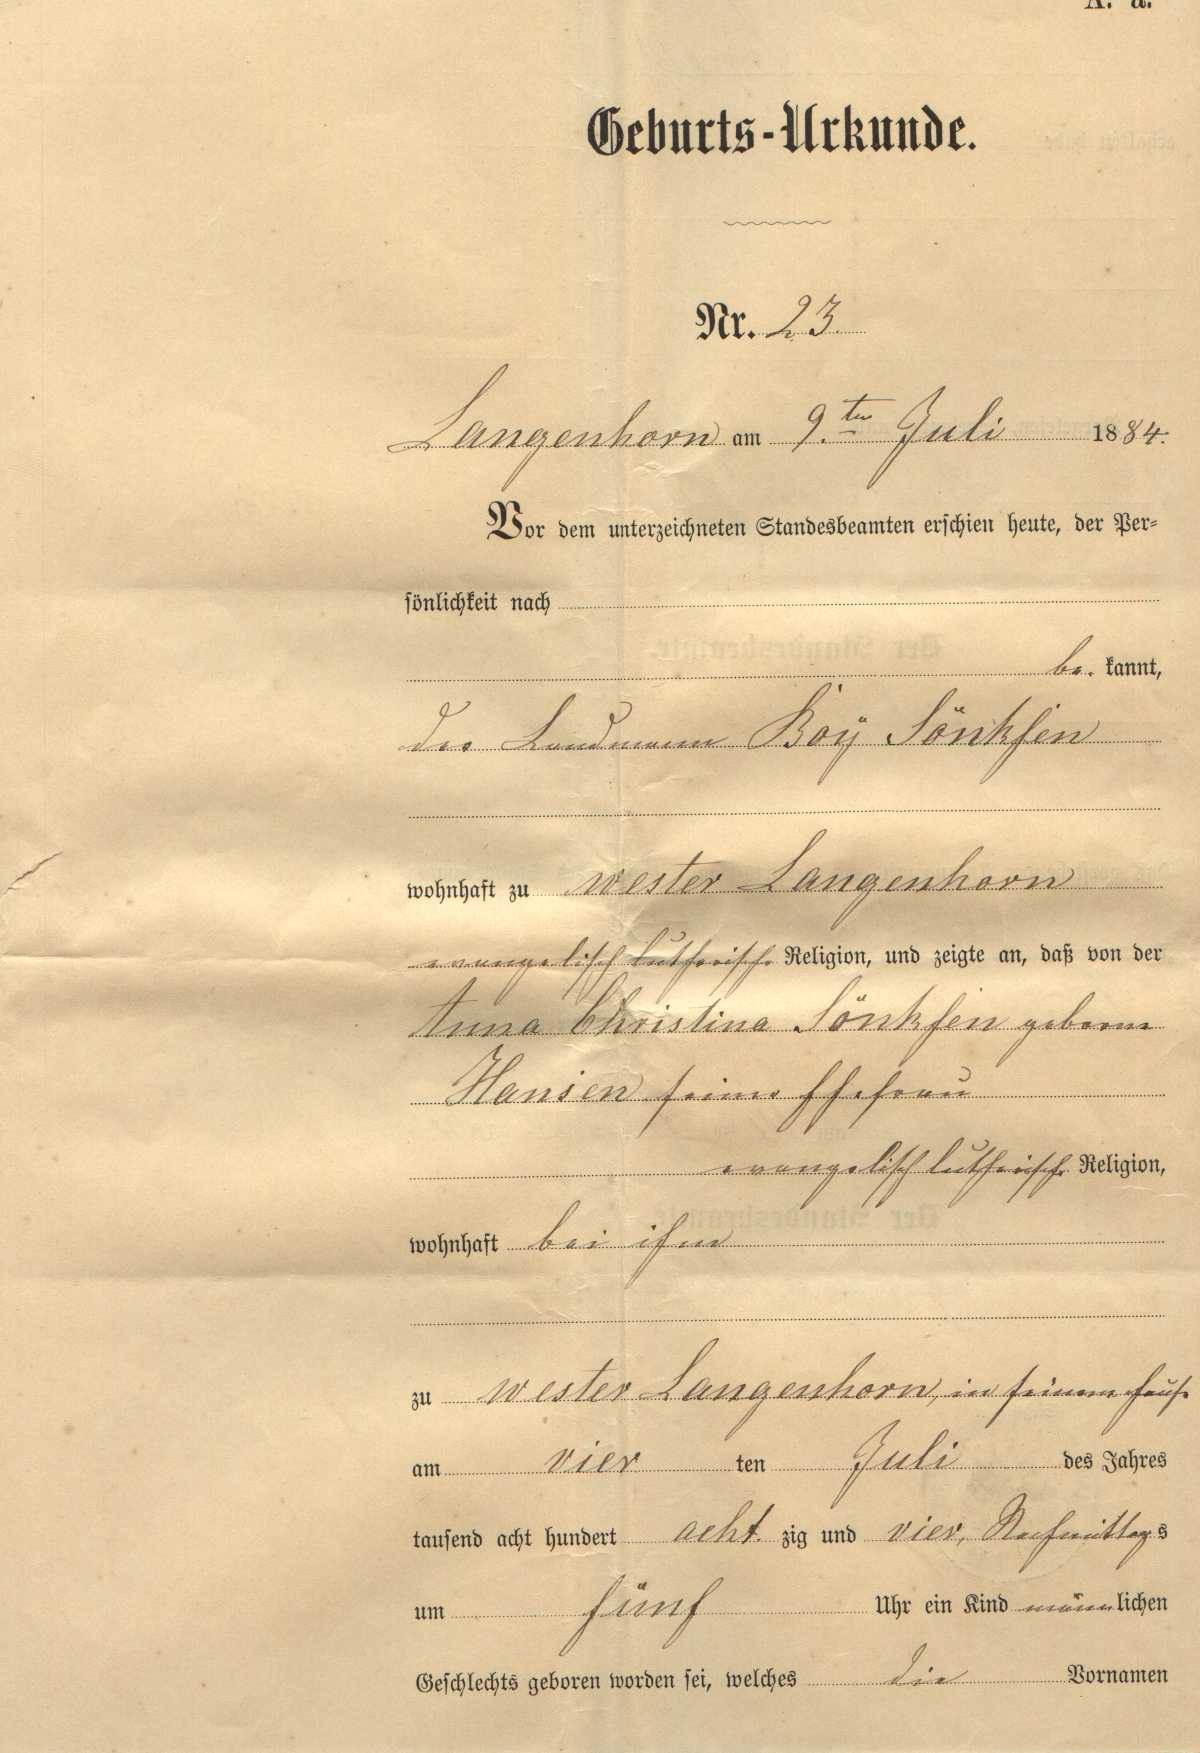 A. a.
Geburts-Urkunde.
Nr. 23.
Langenhorn am 9.ten Juli 1884.
Vor dem unterzeichneten Standesbeamten erschien heute, der Per-
sönlichkeit nach
be- kannt,
der Landmann Boÿ Sönksen
wohnhaft zu wester Langenhorn
evangelisch lutherische Religion, und zeigte an, daß von der
Anna Christina Sönksen geborne
Hansen seine Ehefrau
evangelisch lutherische Religion,
wohnhaft bei ihm
zu wester Langenhorn, in seinem Hause
am vier ten Juli des Jahres
tausend acht hundert acht zig und vier, Nachmittags
um fünf Uhr ein Kind männlichen
Geschlechts geboren worden sei, welches die Vornamen